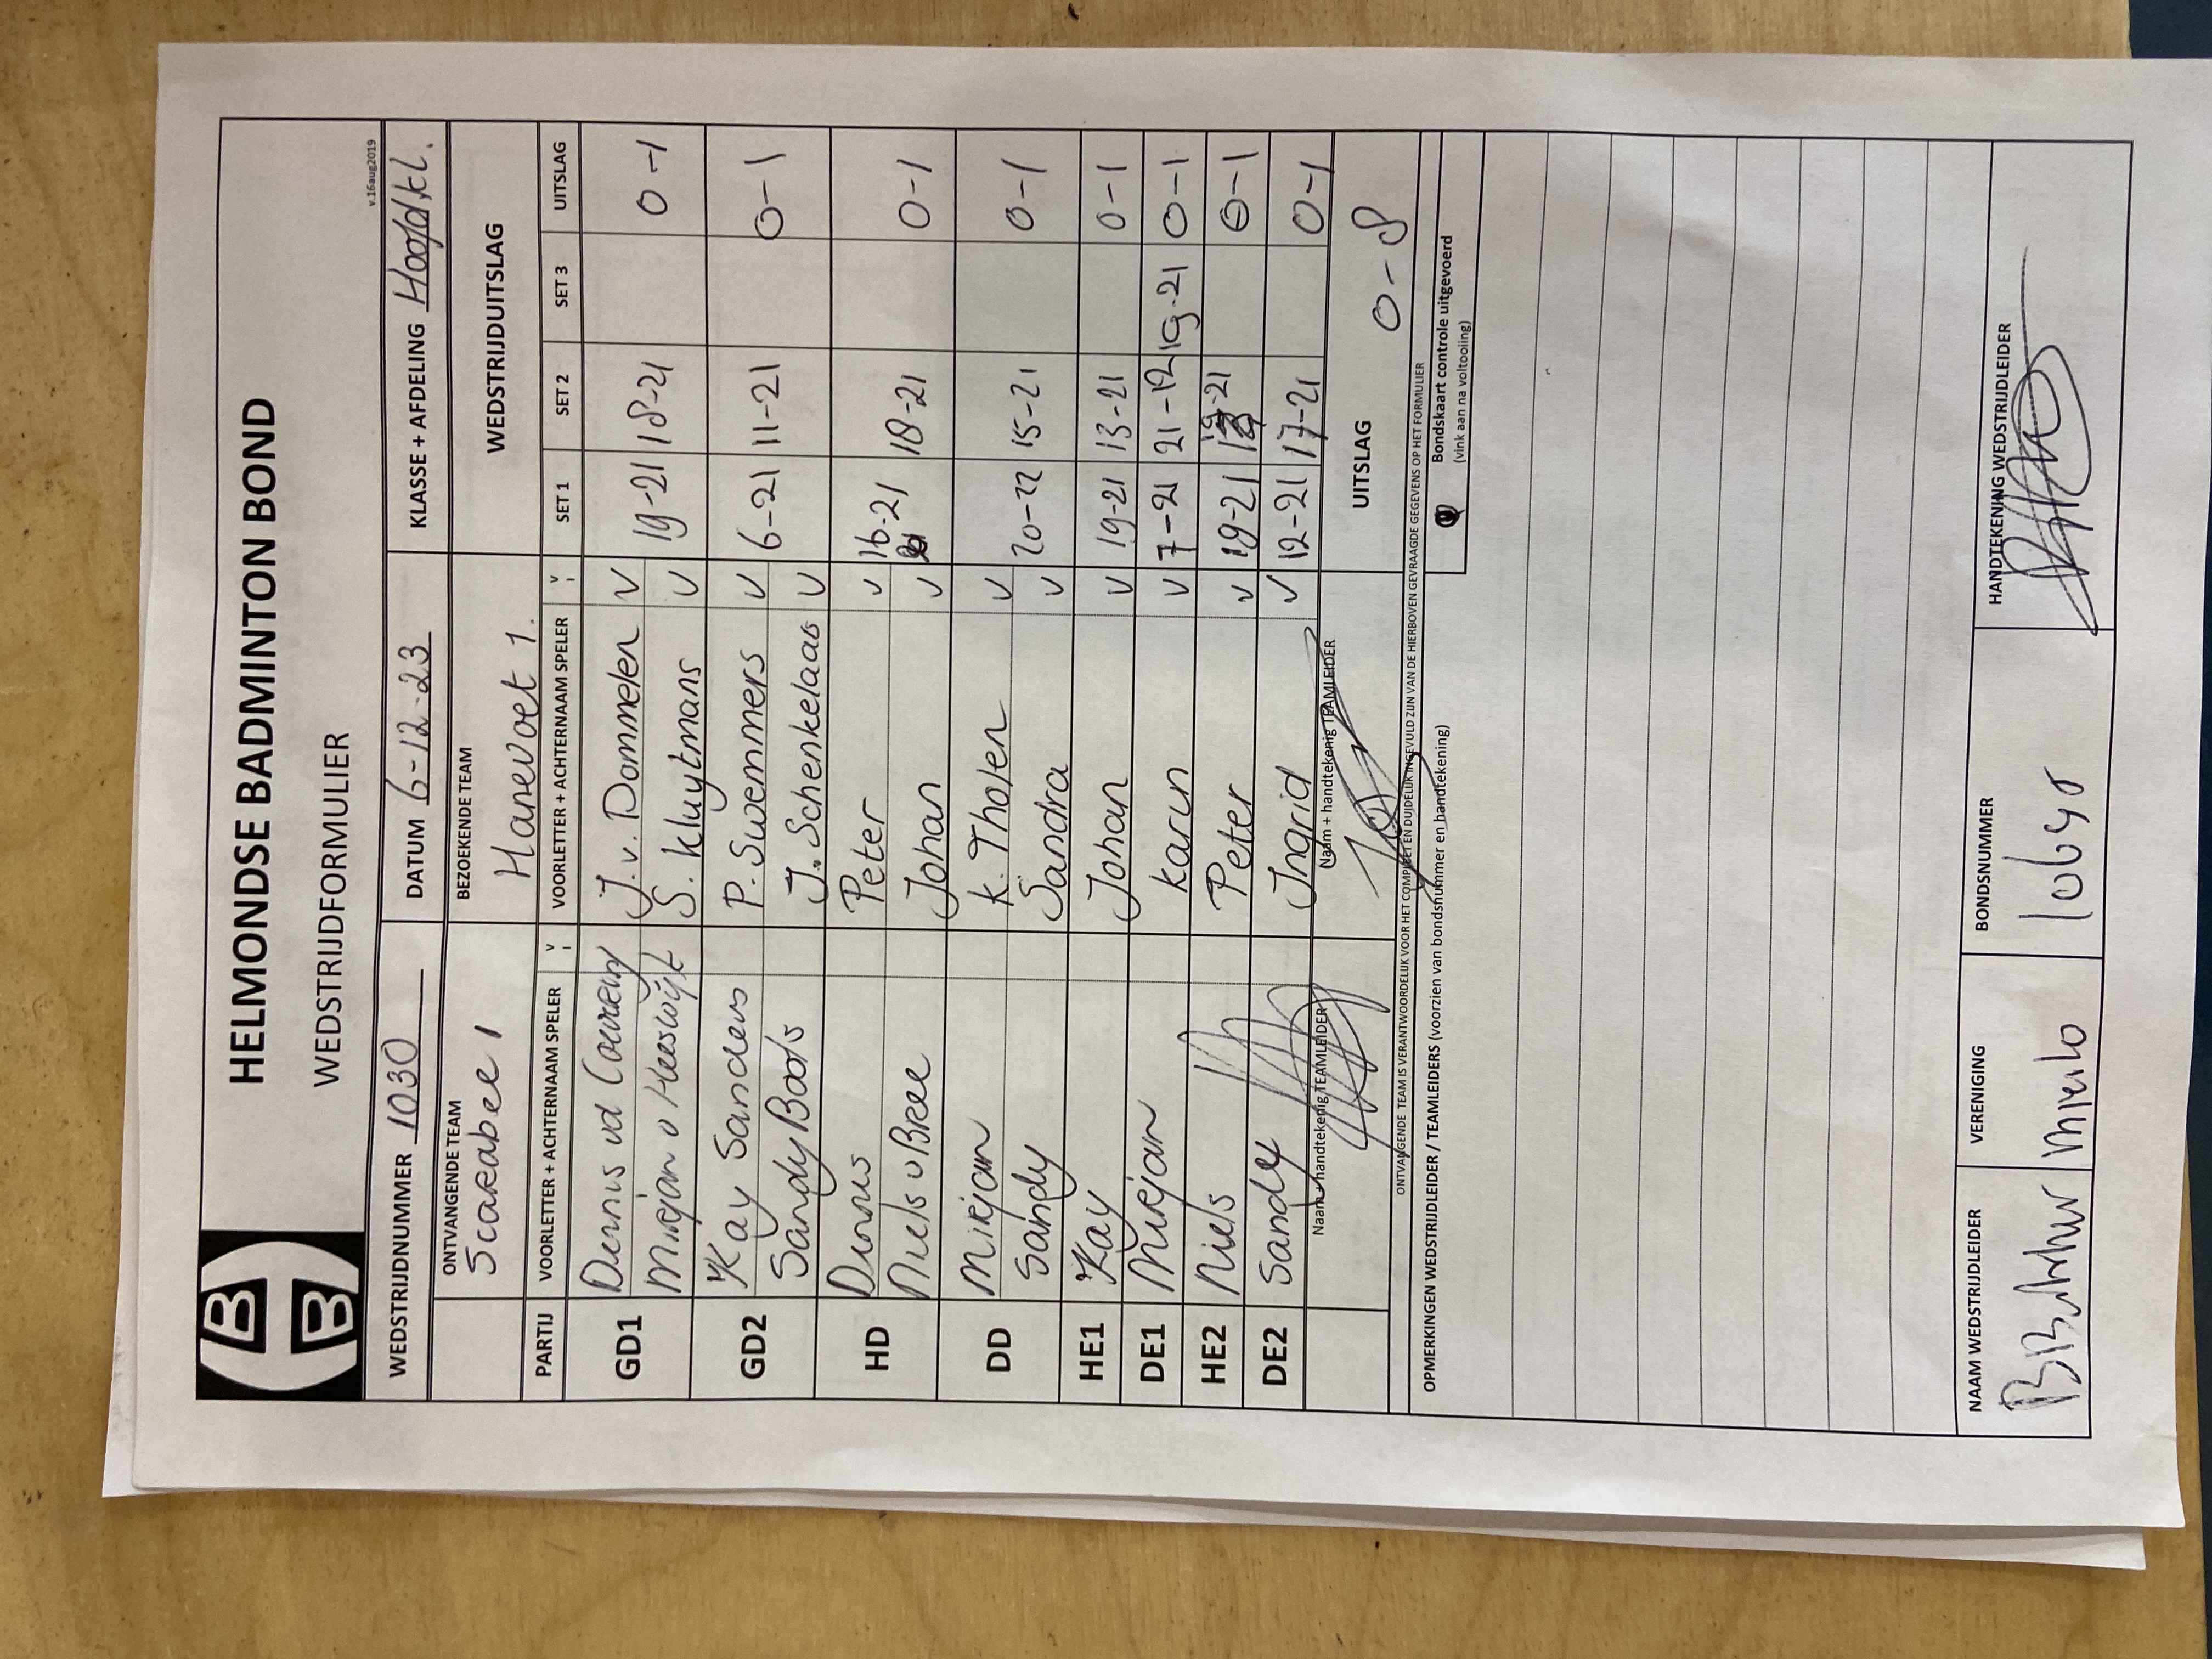 HELMONDSE BADMINTON BOND
WEDSTRIJDFORMULIER
v.16aug2019
WEDSTRIJDNUMMER 1030 DATUM 6-12-23 KLASSE + AFDELING Hoofdkl.
ONTVANGENDE TEAM BEZOEKENDE TEAM WEDSTRIJDUITSLAG
Scarabee 1 Hanevoet 1.
PARTIJ VOORLETTER + ACHTERNAAM SPELER V VOORLETTER + ACHTERNAAM SPELER V SET 1 SET 2 SET 3 UITSLAG
GD1 Dennis vd J. v. Dommelen V 19-21 18-21 0-1
Mirjan v Heeswijk S. Kluytmans V
GD2 Kay Sanders P. Swemmers V 6-21 11-21 0-1
Sandy Boots J. Schenkelaas V
HD Dennis Peter V 16-21 18-21 0-1
Niels v Bree Johan V
DD Mirjan K. Tholen V 20-22 15-21 0-1
Sandy Sandra V
HE1 Kay Johan V 19-21 13-21 0-1
DE1 Mirjan Karin V 7-21 21-12 19-21 0-1
HE2 Niels Peter V 19-21 19-21 0-1
DE2 Sandy Ingrid V 12-21 17-21 0-1
Naam + handtekenig TEAMLEIDER Naam + handtekenig TEAMLEIDER UITSLAG 0-8
ONTVANGENDE TEAM IS VERANTWOORDELIJK VOOR HET COMPLEET EN DUIDELIJK INGEVULD ZIJN VAN DE HIERBOVEN GEVRAAGDE GEGEVENS OP HET FORMULIER
OPMERKINGEN WEDSTRIJDLEIDER / TEAMLEIDERS (voorzien van bondsnummer en handtekening)
Bondskaart controle uitgevoerd
(vink aan na voltooiing)
NAAM WEDSTRIJDLEIDER VERENIGING BONDSNUMMER HANDTEKENING WEDSTRIJDLEIDER
Mierlo